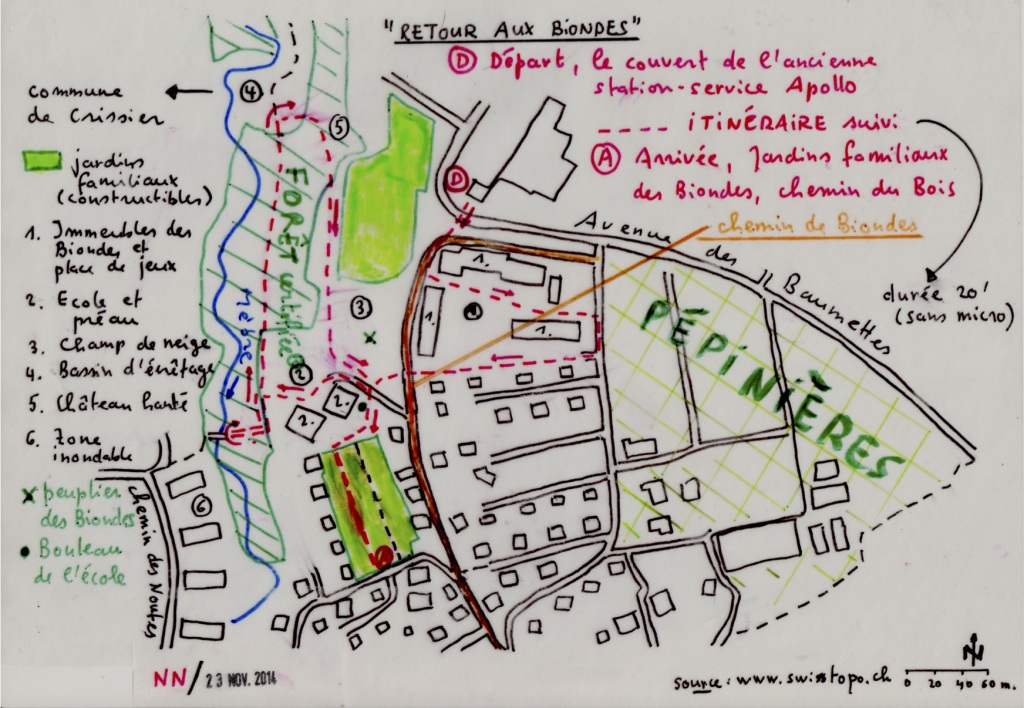 "RETOUR AUX BIONDES"
D Départ, le couvert de l'ancienne
station-service Apollo
ITINÉRAIRE suivi
A Arrivée, Jardins familiaux
des Biondes, chemin du Bois
chemin de Biondes
durée 20'
(sans micro)
commune
de Crissier
jardins
familiaux
(constructibles)
1. Immeubles des
Biondes et
place de jeux
2. Ecole et
préau
3. Champ de neige
4. Bassin d'écrêtage
5. Château hanté
6. Zone
inondable
x peuplier
des Biondes
• Bouleau
de l'école
4
5
D
FORÊT certifiée
Mèbre
Avenue des Baumettes
1.
1.
1.
3
2
2.
2.
PÉPINIÈRES
6
Chemin des Noutes
A
NN/23 NOV. 2014
source: www.swisstopo.ch
N
0 20 40 60 m.